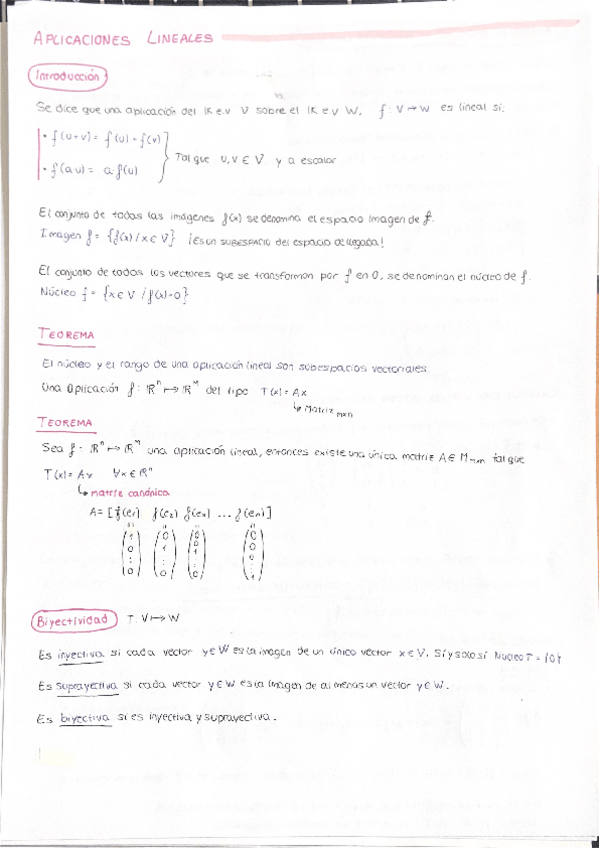 APLICACIONES LINEALES
Introducción
Se dice que una aplicación del IK e.v V sobre el IK e.v W, f: V → W es lineal si:
• f(u+v) = f(u) + f(v)
• f(a·u) = a·f(u)
Tal que u,v ∈ V y a escalar
El conjunto de todas las imágenes f(x) se denomina el espacio imagen de f.
Imagen f = {f(x) / x ∈ V} ¡Es un SUBESPACIO del espacio de llegada!
El conjunto de todos los vectores que se transforman por f en 0, se denominan el núcleo de f.
Núcleo f = {x ∈ V / f(x)=0}
TEOREMA
El núcleo y el rango de una aplicación lineal son subespacios vectoriales.
Una aplicación f: ℝⁿ ↦ ℝᵐ del tipo T(x) = Ax
↳ Matriz mxn
TEOREMA
Sea f: ℝⁿ ↦ ℝᵐ una aplicación lineal, entonces existe una única matriz A ∈ Mmxn tal que
T(x) = Ax ∀x ∈ ℝⁿ
↳ matriz canónica
A = [f(e₁) f(e₂) f(e₃) ... f(eₙ)]
Biyectividad T: V ↦ W
Es inyectiva si cada vector y ∈ W es la imagen de un único vector x ∈ V. Sí y solo sí Núcleo T = {0}
Es suprayectiva si cada vector y ∈ W es la imagen de al menos un vector y ∈ W.
Es biyectiva si es inyectiva y suprayectiva.